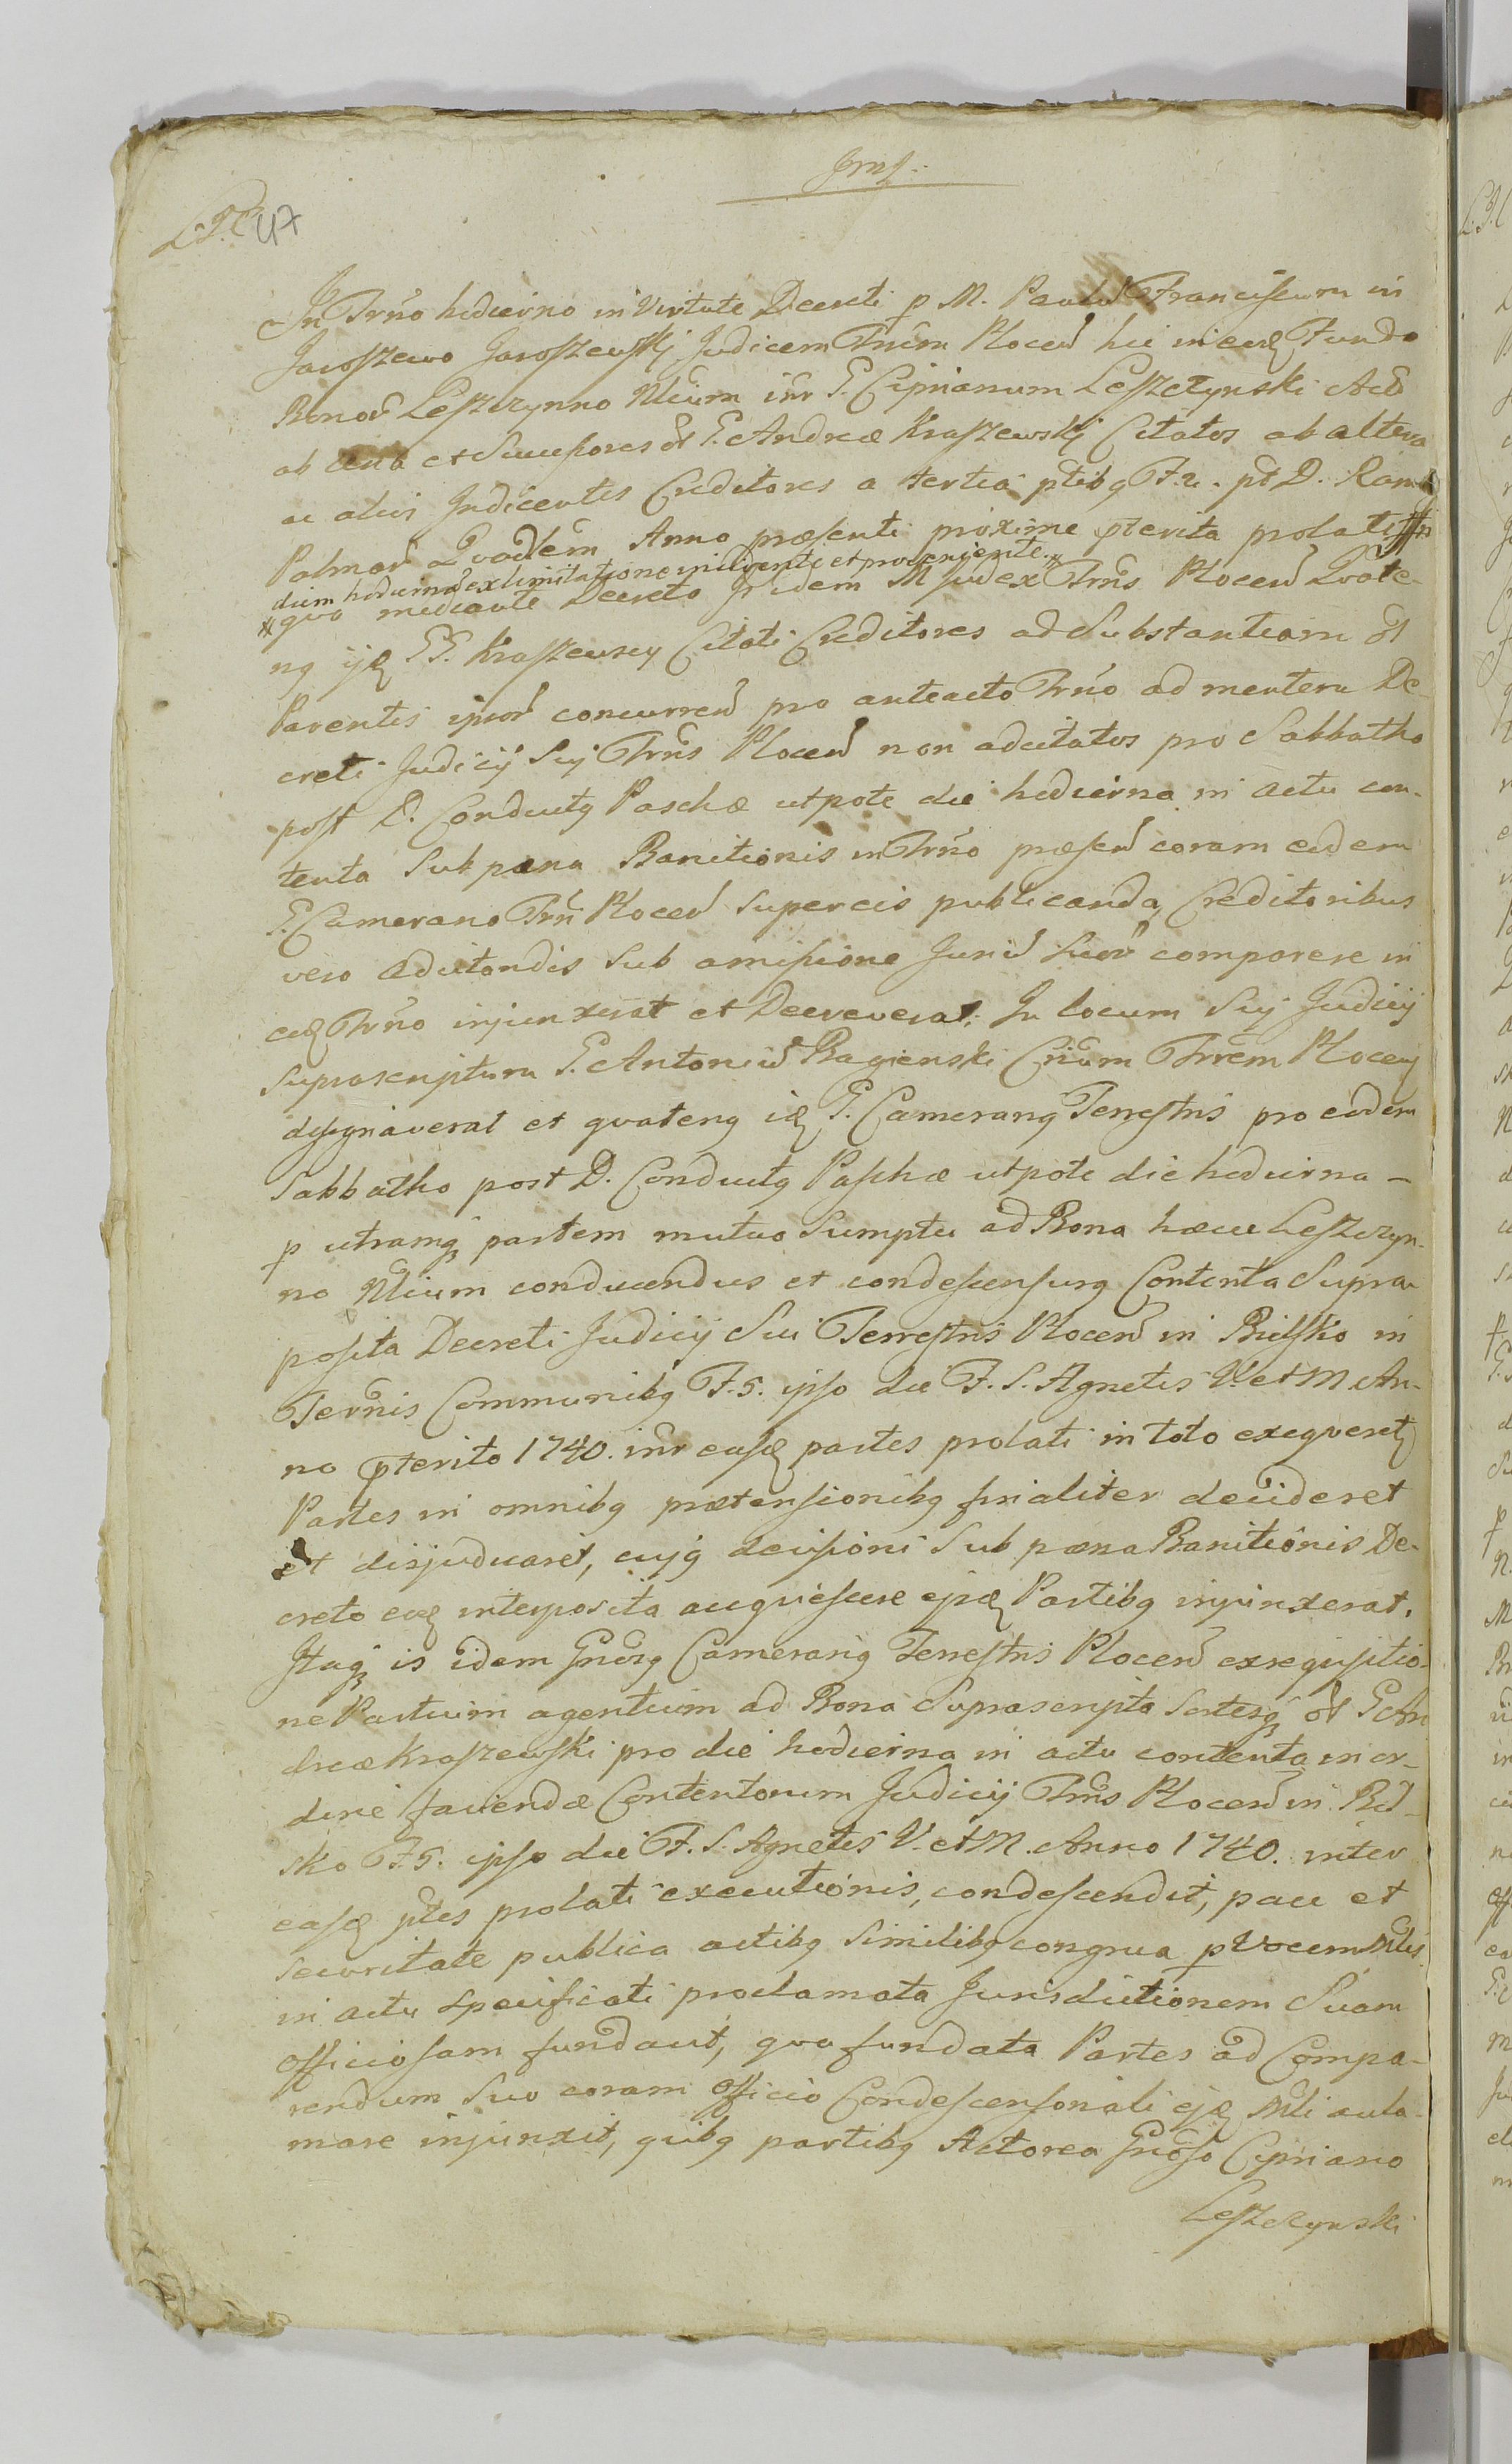 L.P.C 47
In Trno hodierno in Virtute Decreti p M. Paulu Franciscum in
Jaroszewo Jaroszewskj Judicem Trrem Plocen hic in eaq Fundo
Bonor Leszczynno Nlium inr G. Ciprianum Leszczynski Act
ab una et Successores ol G. Andreæ Kraszewskj Citatos ab altera
ac alios Indicentes Creditores a tertia ptibq F. 2. pt D. Ram
Palmar Quadlem Anno præsenti proxime pterita prolati
diem hodierna ex limitatione incidente et proveniente
quo mediante Decreto Ir idem M Judex Trris Plocen Quate-
nq ijq GG. Kraszewscy Citati Creditores ad Substantiam ol
Parentis ipsor concurren pro anteacto Trno ad mentem De-
creti Judicij Sui Trris Plocen non adcitatos pro Sabbatho
post D. Conductq Paschæ utpote die hodierna in actu con-
tenta Sub pæna Banitionis in Trno præsen coram eodem
G. Camerario Trri Plocen Super eis publicanda, Creditoribus
vero adcitandis Sub amissione Juriu Suor comparere in
eoq Trno injunxerat et Decreverat. In locum Sui Judicij
suprascriptum G. Antoniu Bagienski Crium Trrem Plocen
designaverat et quatenq iq G. Camerariq Terrestris pro eodem
Sabbatho post D. Conductq Paschæ utpote die hodierna -
p utramq partem mutuo Sumptu ad Bona hæcce Leszczyn-
no Nlium conducendus et condescensurq Contenta Supra
posita Decreti Judicij Sui Terrestris Plocen in Bielsko in
Terris Communibq F. 5. ipso die F. S. Agnetis V. et M. An-
no pterito 1740. inr easq partes prolati in toto exequeretq
Partes in omnibq prætensionibq finaliter decideret
et disjudicaret, cujq decisioni Sub pæna Banitionis De-
creto eoq interposita acquiescere ijsq Partibq injunxerat.
Itaq is idem Gnosq Camerariq Terrestris Plocen ex requisitio-
ne Partium agentium ad Bona Suprascripta Sortesq ol G An
dreæ Kraszewski pro die hodierna in actu contenta in or-
dine faciendæ Contentorum Judicij Trris Plocen in Biel-
sko F. 5. ipso die F. S. Agnetis V. et M. Anno 1740. inter
easq ptes prolati executionis, condescendit, pace et
securitate publica actibq similibq congrua p Vocem Mlis
in actu specificati proclamata Jurisdictionem Suam
officiosam fundavit, qua fundata Partes ad Compa-
rendum Suo coram officio Condescensoriali ejq Mli acla-
mare injunxit, quibq partibq Actorea Gnoso Cipriano
Leszczynski